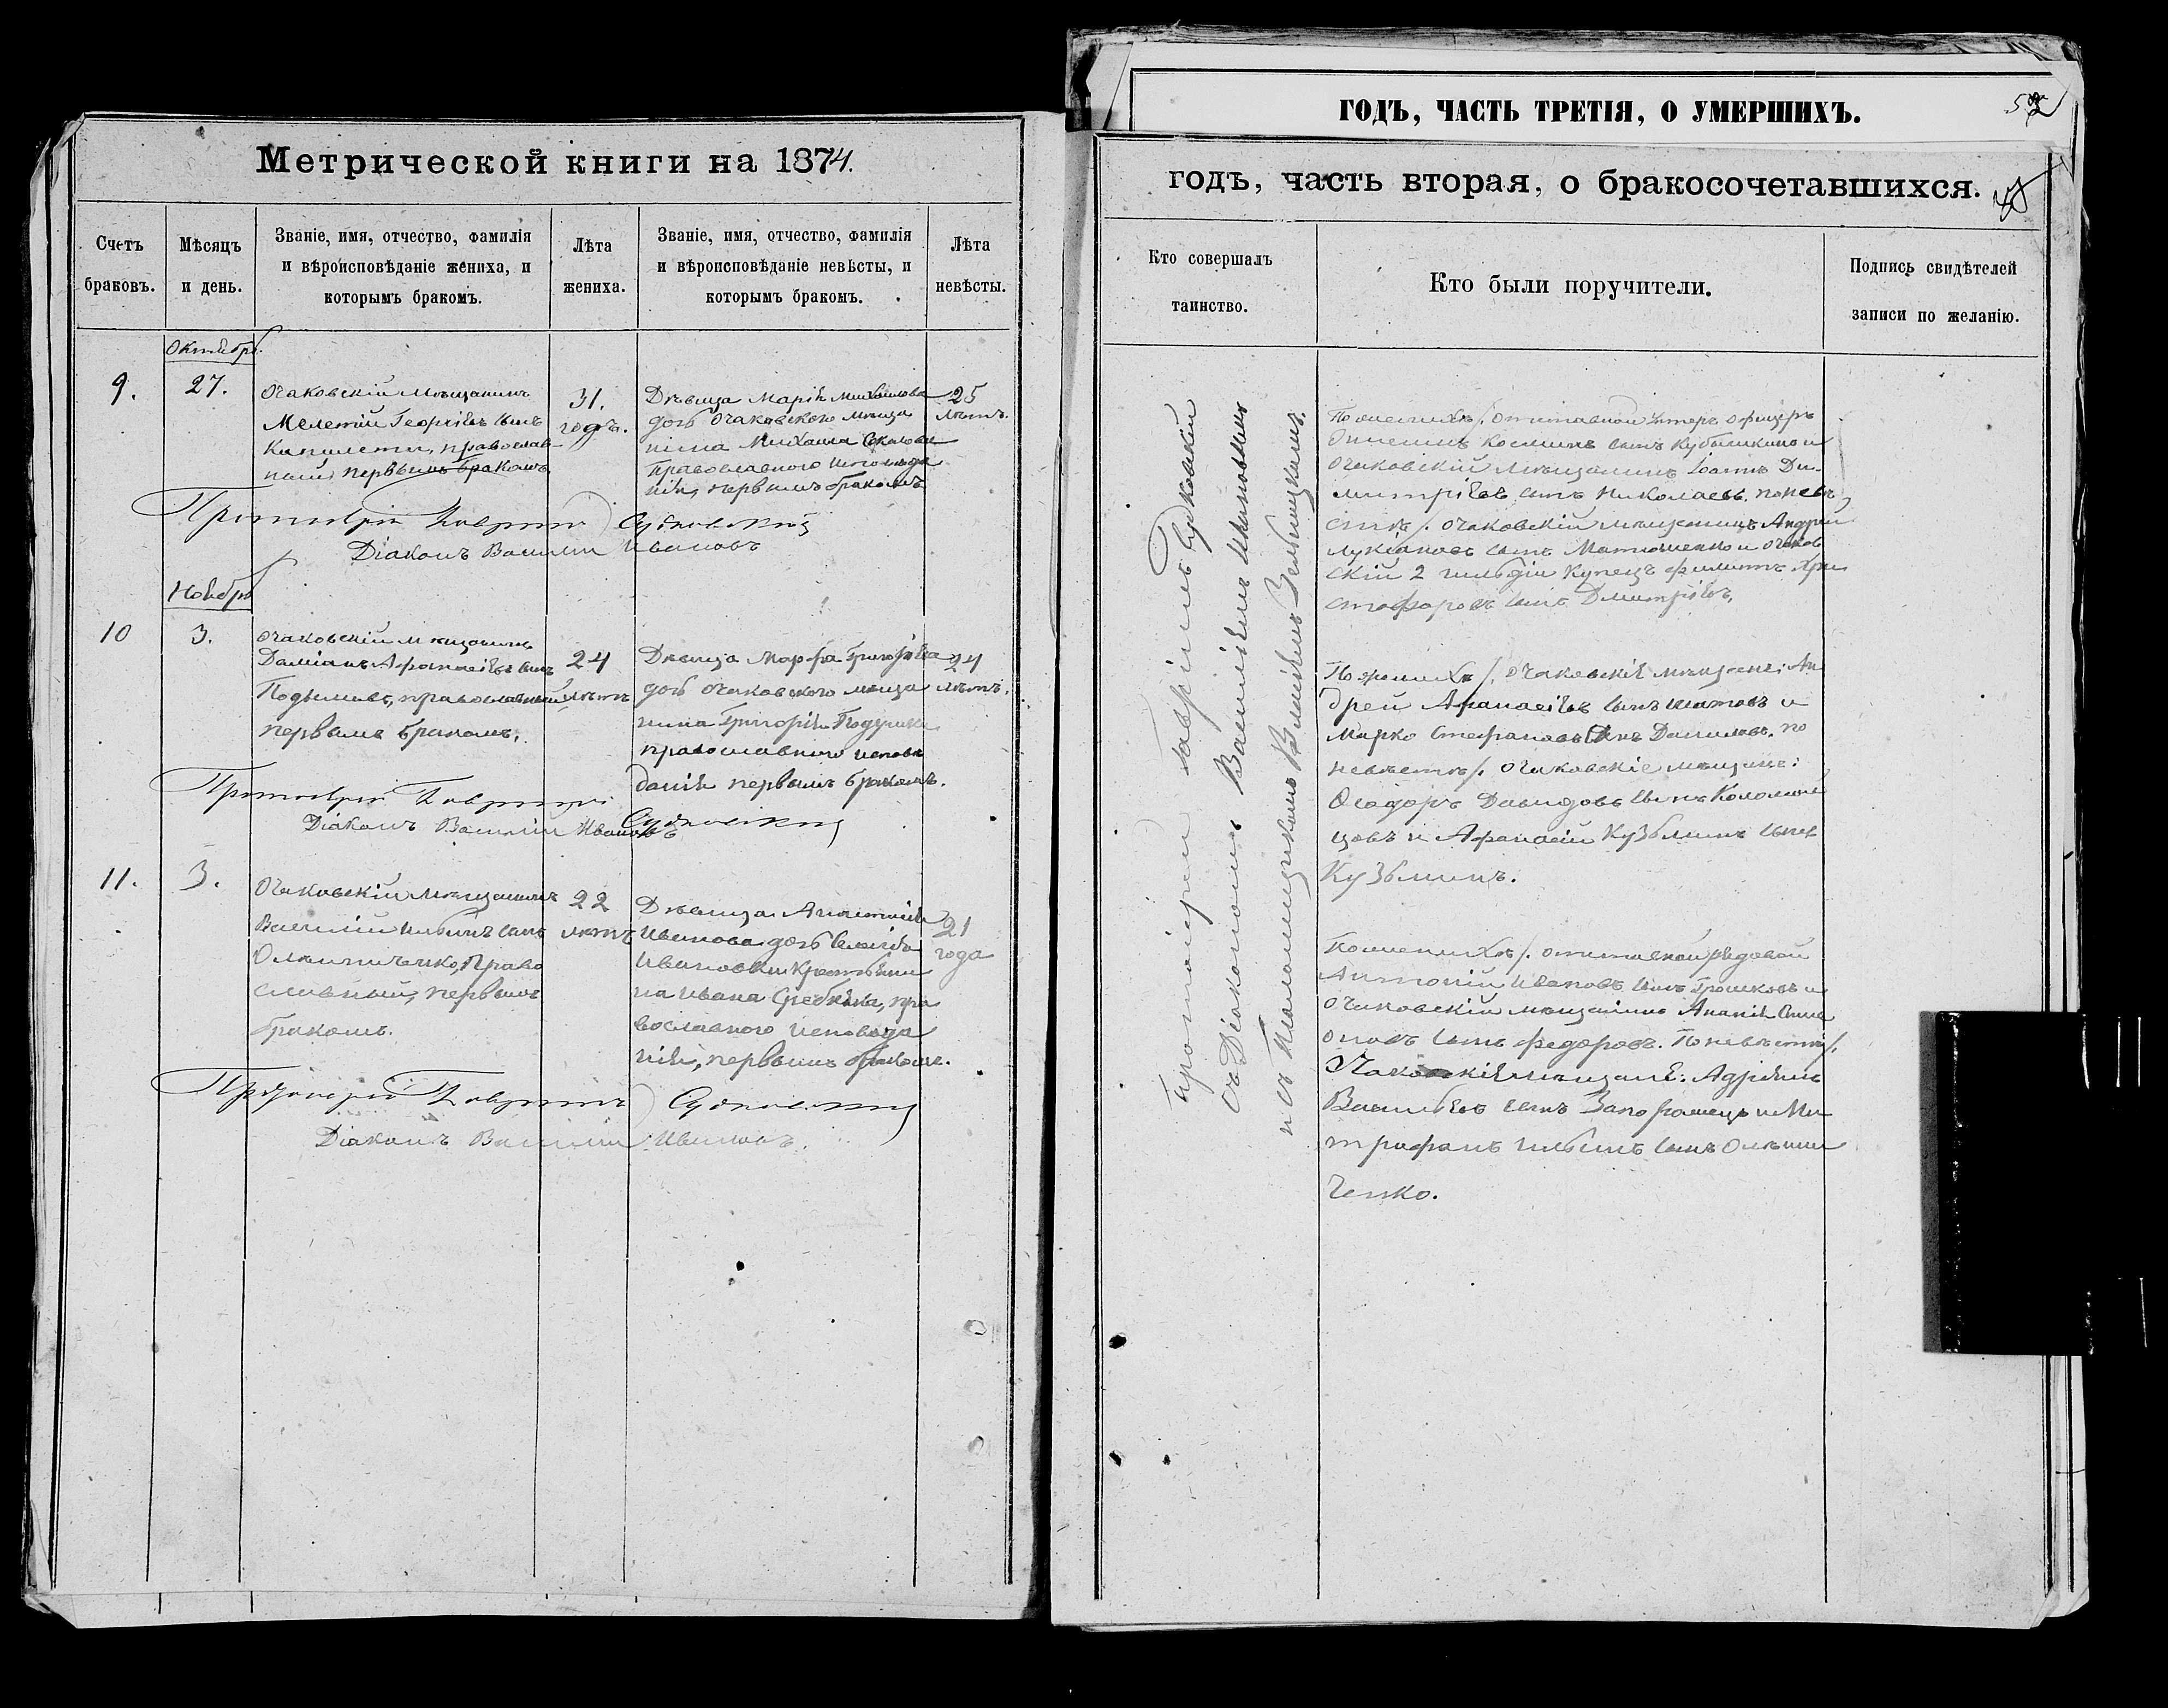 Метрической книги на 1874.
Счетъ браковъ.
Мѣсяцъ и день.
Званіе, имя, отчество, фамилія
и вѣроисповѣданіе жениха, и
которымъ бракомъ.
Лѣта жениха.
Званіе, имя, отчество, фамилія
и вѣроисповѣданіе невѣсты, и
которымъ бракомъ.
Лѣта невѣсты.
Октябрь.
9.
27.
Очаковскій мѣщанинъ
Мелетій Георгіевъ сынъ
православ-
ный первымъ бракомъ,
31.
годъ.
Дѣвица Марія Михайлова
дочь Очаковскаго мѣща
нина Михаила
Православнаго исповѣда
нія, первымъ бракомъ
25
лѣтъ.
Протоіерей Гавріилъ Судковскій
Діаконъ Василій Ивановъ
Ноябрь
10
3.
Очаковскій мѣщанинъ
Даміанъ Афанасіевъ сынъ
православный
первымъ бракомъ,
24
лѣтъ
Дѣвица Марфа Григорьева
дочь Очаковскаго мѣща
нина Григорія
православнаго исповѣ
данія первымъ бракомъ.
24
лѣтъ.
Протоіерей Гавріилъ Судковскій
Діаконъ Василій Ивановъ
11.
3.
Очаковскій мѣщанинъ
Василій Ильинъ сынъ
Право
славный, первымъ
бракомъ.
22
лѣтъ
Дѣвица Анастасія
Иванова дочь
Ивановки Крестьяни
на Ивана пра
вославнаго исповѣда
нія, первымъ бракомъ.
21
года
Протоіерей Гавріилъ Судковскій
Діаконъ Василій Ивановъ.
ГОДЪ, ЧАСТЬ ТРЕТІЯ, О УМЕРШИХЪ.
годъ, часть вторая, о бракосочетавшихся.
Кто совершалъ
таинство.
Кто были поручители.
Подпись свидѣтелей
записи по желанію.
Протоіерей Гавріилъ Судковскій
съ Діакономъ Василіемъ Ивановымъ
и съ Псаломщикомъ
По женихѣ/. отставной унтеръ офицеръ
Косминъ сынъ и
Очаковскій мѣщанинъ Іоаннъ Ди-
митріевъ сынъ Николаевъ. по невѣ
стѣ/. Очаковскій мѣщанинъ Андрей
Лукіановъ сынъ Матюшенко и Очаков
скій 2 гильдіи купецъ Филиппъ Хри
стофоровъ сынъ Дмитріевъ,
По женихѣ/. Очаковскіе мѣщане: Ан
дрей Афанасіевъ сынъ и
Марко Стефановъ сынъ Даниловъ. по
невѣстѣ/. Очаковскіе мѣщане:
Ѳеодоръ Давидовъ сынъ Коломій
цовъ и Афанасій Кузьминъ сынъ
Кузьминъ.
По женихѣ/. отставной рядовой
Антоній Ивановъ сынъ Грошковъ и
Очаковскій мѣщанинъ Ананія
сынъ Федоровъ. По невѣстѣ/.
мѣщане: Адріанъ
Васильевъ сынъ Запорожецъ и Ми
трофанъ Ильинъ сынъ
ченко.